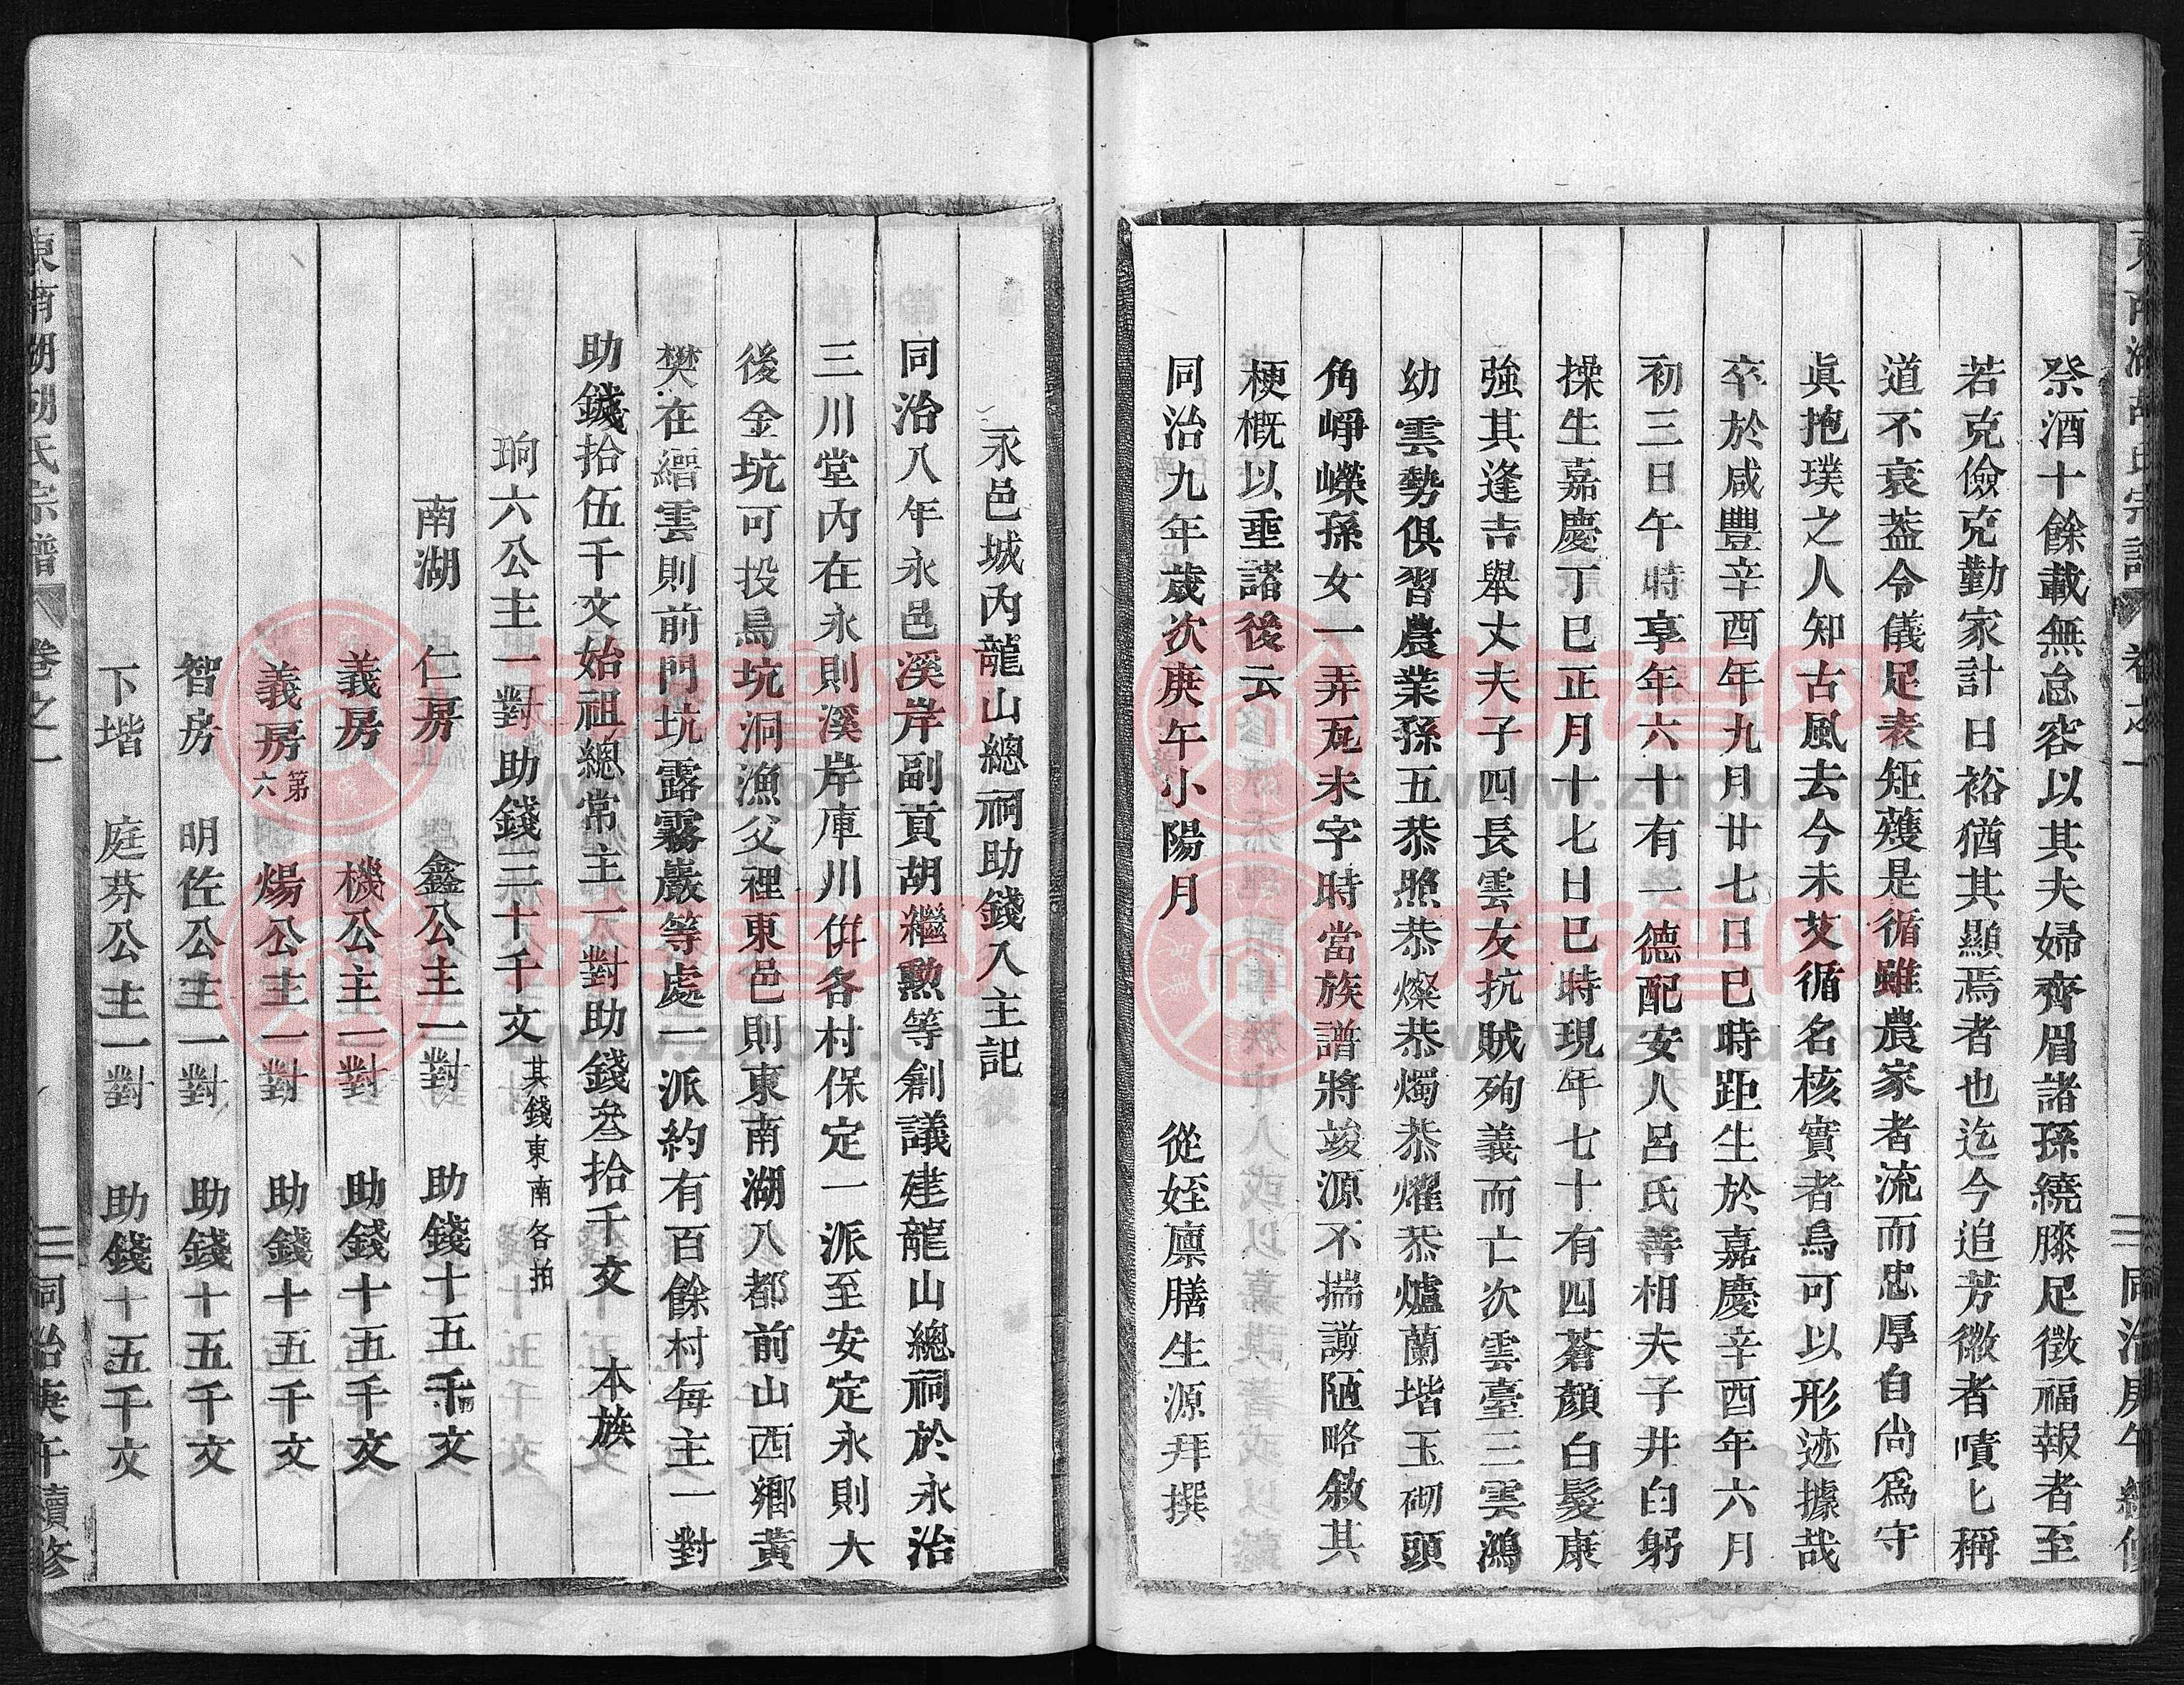 祭酒十餘載無怠容以其夫婦齊眉諸孫繞膝足徵福報者至
若克儉克勤家計日裕猶其顯焉者也迄今追芳徽者嘖匕稱
道不衰葢令儀足表矩蒦是循雖農家者流而忠厚自尚爲守
眞抱璞之人知古風去今未艾循名核實者烏可以形迹據哉
卒於咸豐辛酉年九月廿七日巳時距生於嘉慶辛酉年六月
初三日午時享年六十有一德配安人呂氏善相夫子井臼躬
操生嘉慶丁巳正月十七日巳時現年七十有四蒼顏白髮康
強其逢吉舉丈夫子四長雲友抗賊殉義而亡次雲臺三雲鴻
幼雲勢俱習農業孫五恭照恭燦恭燭恭燿恭爐蘭堦玉砌頭
角崢嶸孫女一弄瓦未字時當族譜將竣源不揣謭陋略敘其
梗概以垂諸後云
同治九年歲次庚午小陽月 從姪廪膳生源拜撰
永邑城內龍山總祠助錢入主記
同治八年永邑溪岸副貢胡繼勲等創議建龍山總祠於永治
三川堂內在永則溪岸庫川倂各村保定一派至安定永則大
後金坑可投烏坑洞漁父裡東邑則東南湖八都前山西鄉黃
樊在縉雲則前門坑露霧巖等處一派約有百餘村每主一對
助錢拾伍千文始祖總常主一對助錢叁拾千文 本族
珦六公主一對助錢三十千文 其錢東南各拍
南湖 仁房 鑫公主一對 助錢十五千文
義房 機公主一對 助錢十五千文
義房第六 煬公主一對 助錢十五千文
智房 明佐公主一對 助錢十五千文
下堦 庭芬公主一對 助錢十五千文
東南湖胡氏宗譜 卷之一 三 同治庚午續修